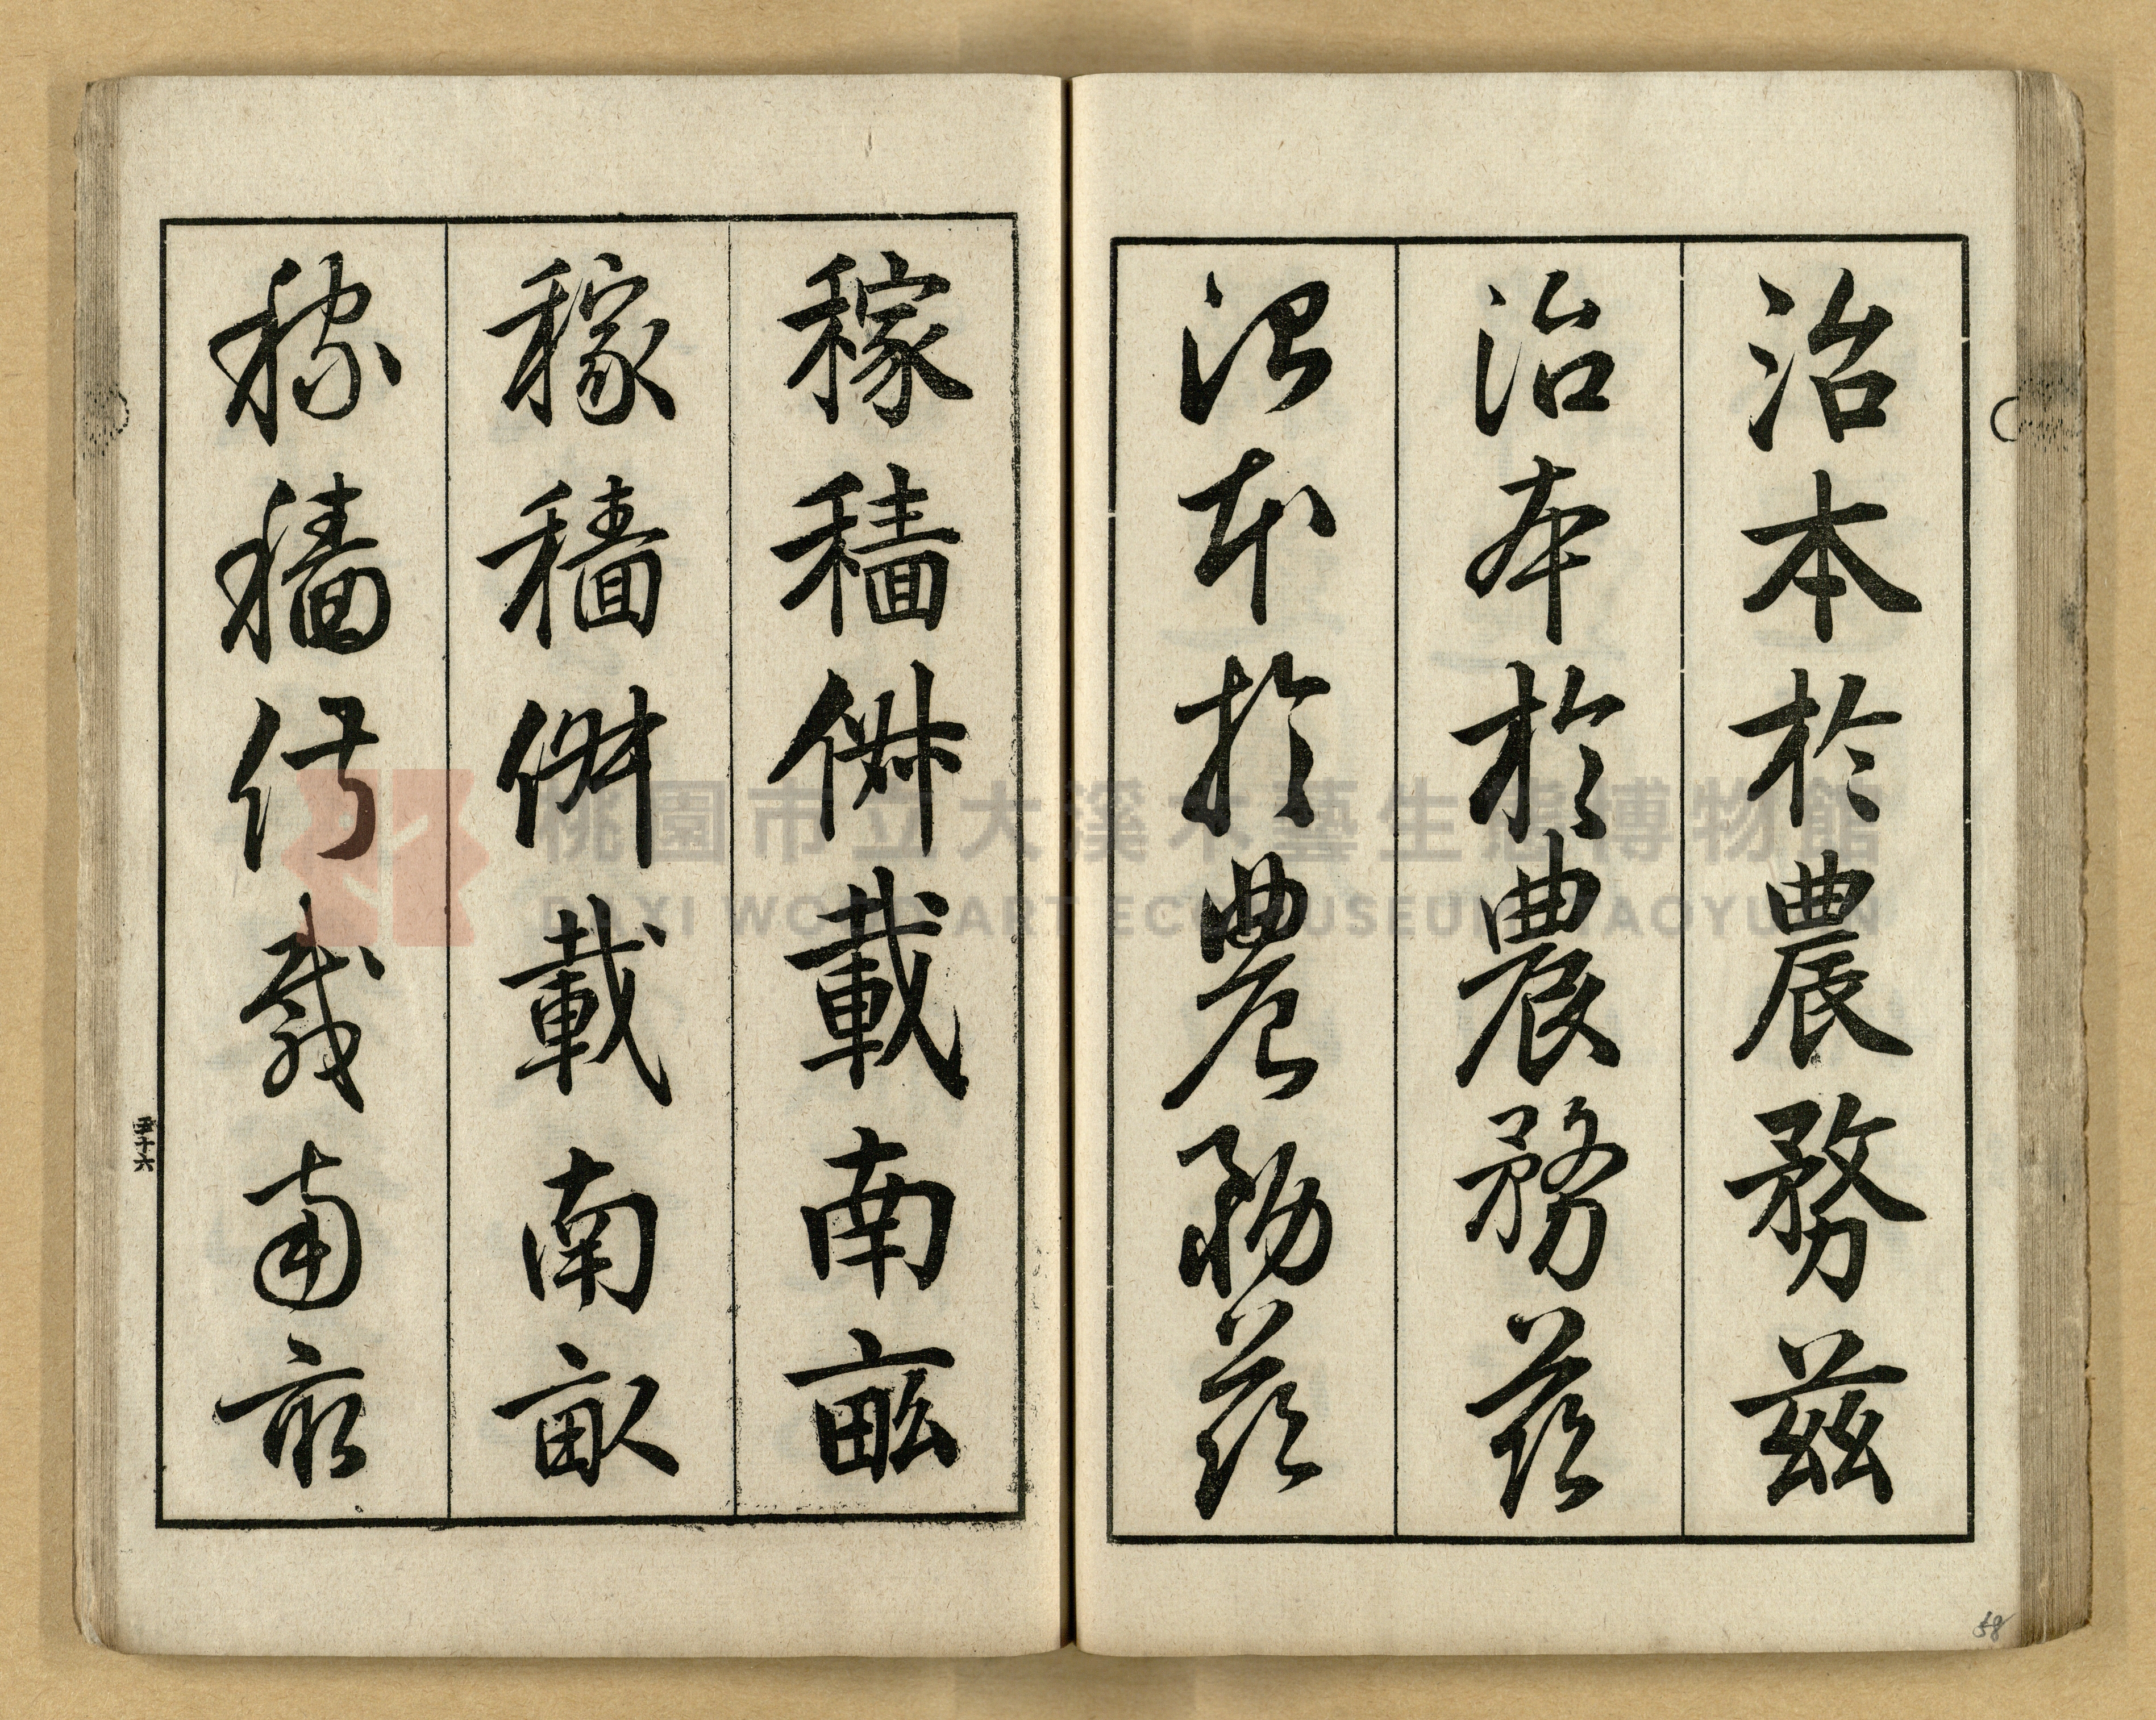 治本於農務茲
治本於農務茲
治本於農務茲
稼穡俶載南畝
稼穡俶載南畝
稼穡俶載南畝
五十六
58
桃園市立大溪木藝生態博物館
DAXI WOOD ART ECOMUSEUM, TAOYUAN